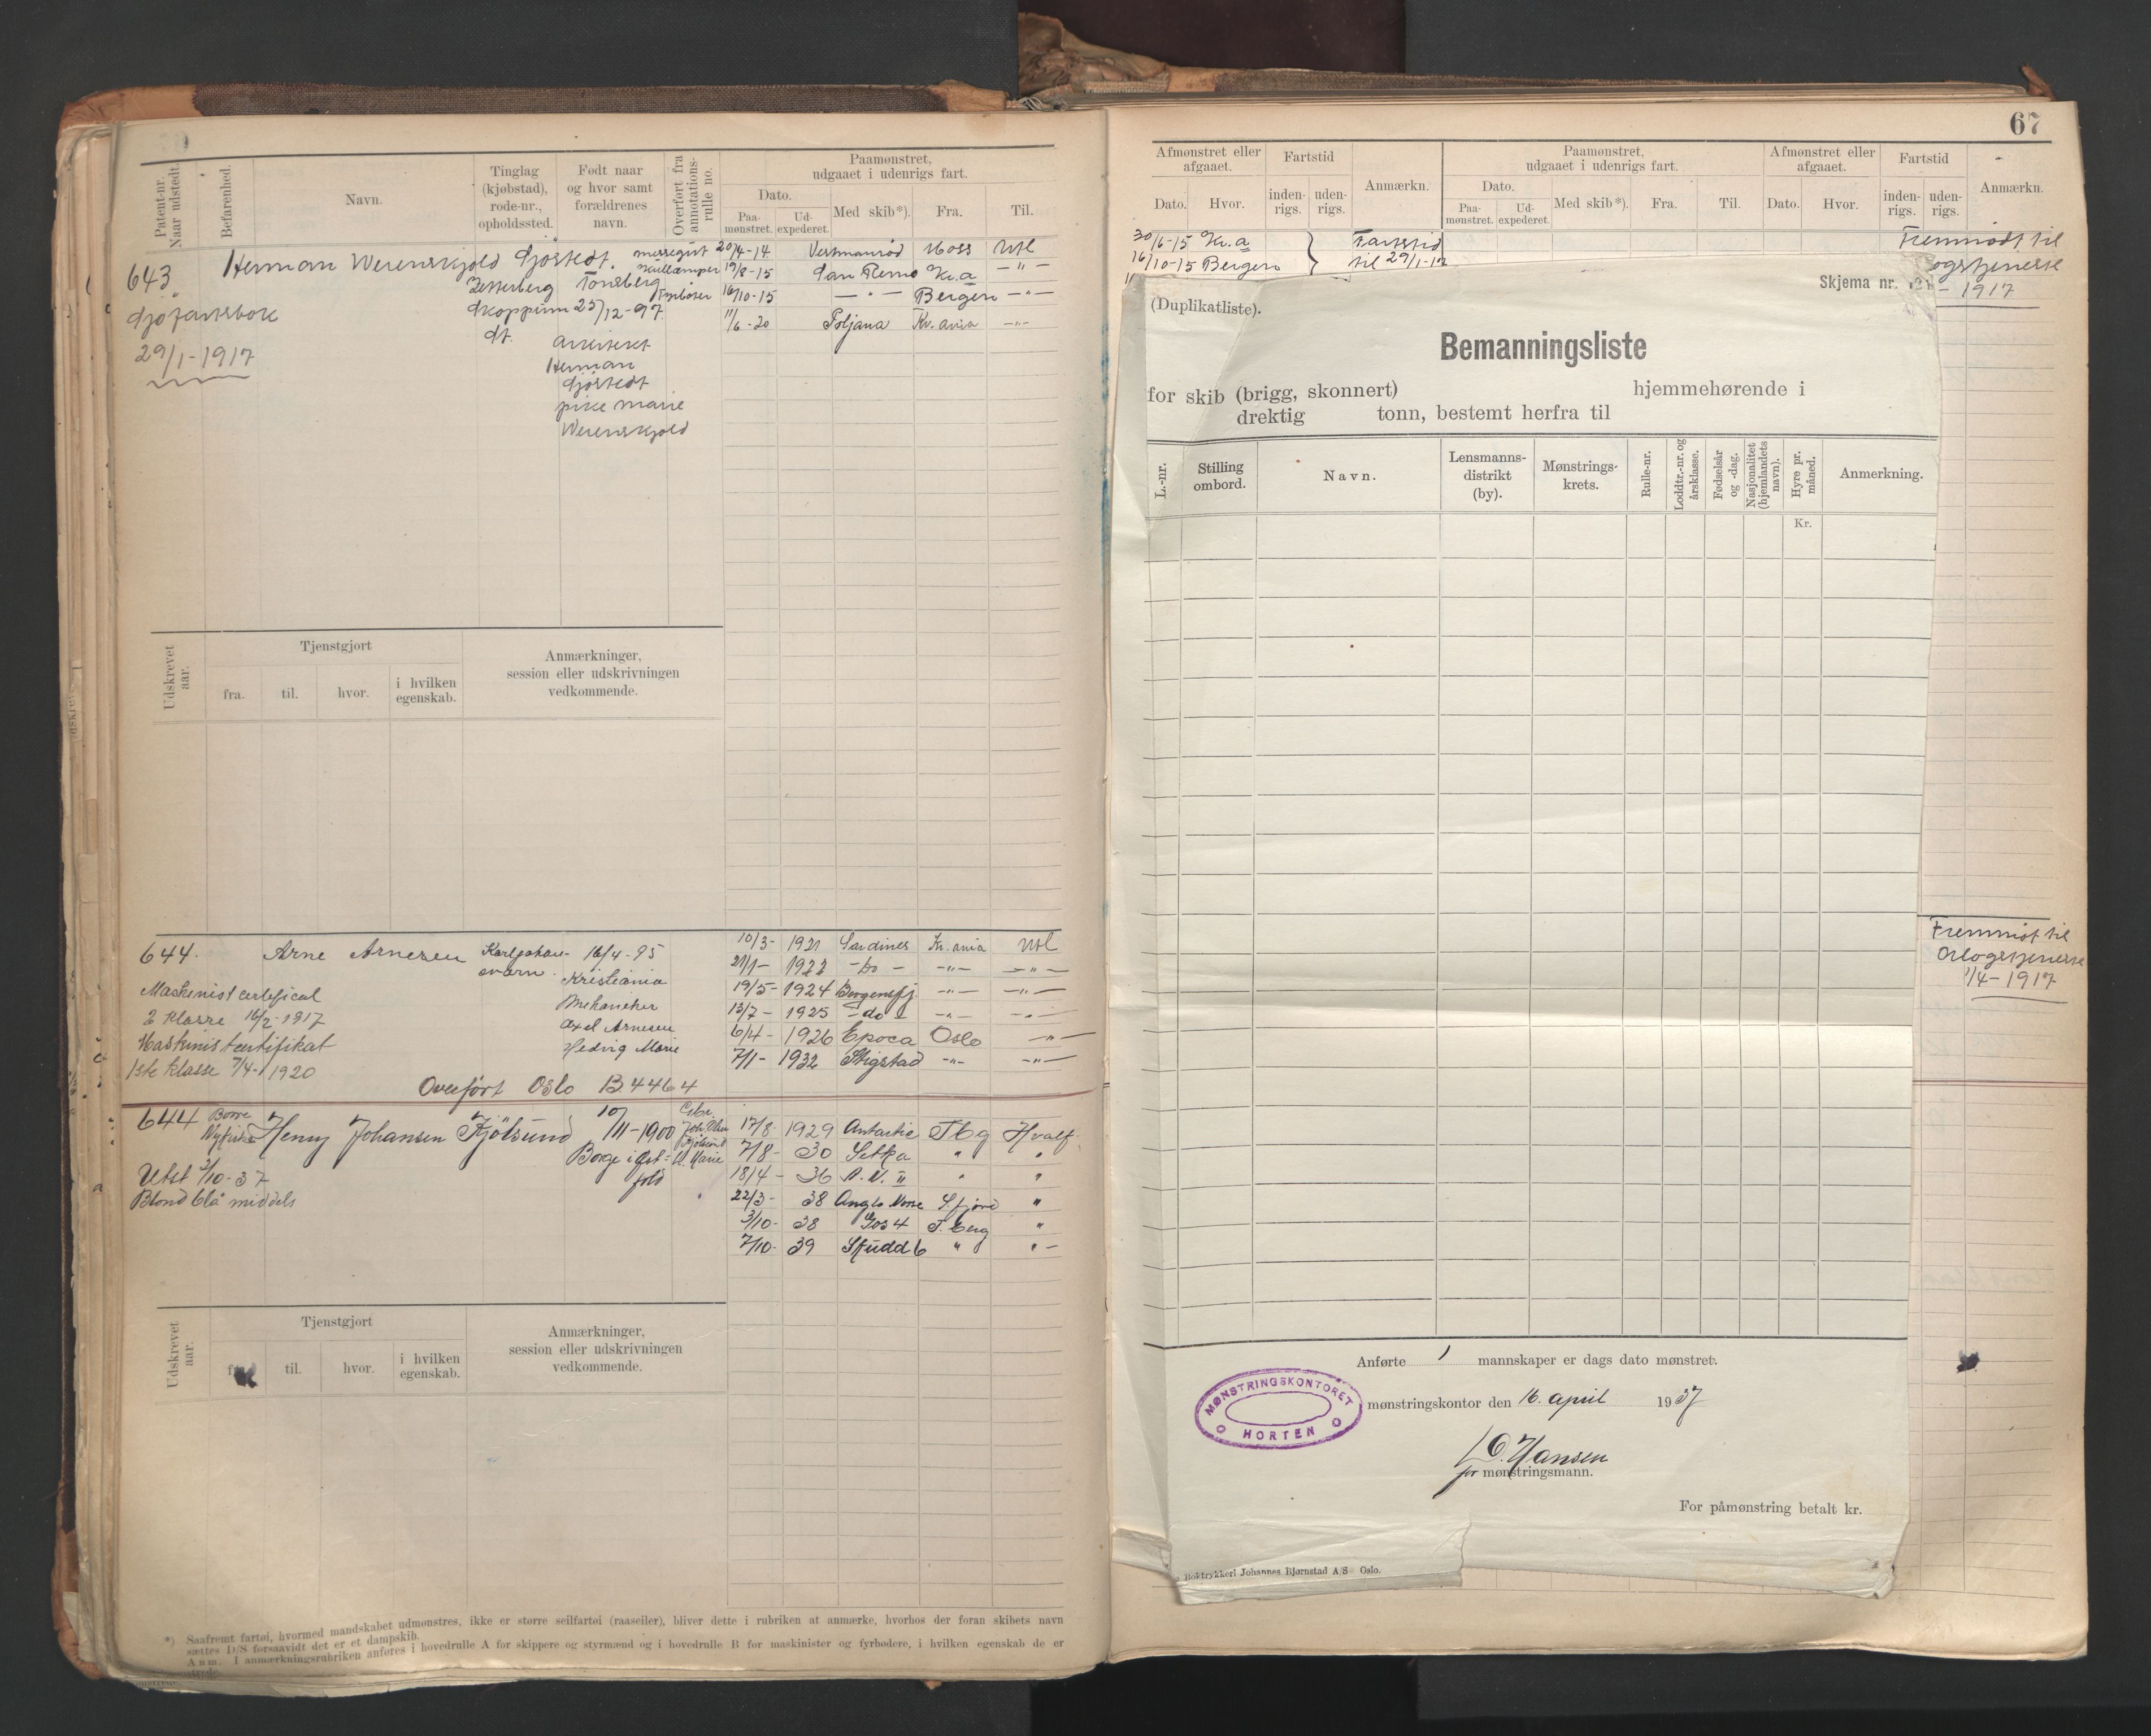 67
Patent-nr. Naar udstedt.
Befarenhed.
Navn.
Tinglag (kjøbstad), rode-nr., opholdssted.
Født naar og hvor samt forældrenes navn.
Overført fra annotations-rulle no.
Paamønstret, udgaaet i udenrigs fart.
Dato.
Paa-mønstret.
Ud-expederet.
Med skib*).
Fra.
Til.
643
Sjøfartsbok
29/1-1917
Herman Werenskjold Sjöstedt.
Zetterberg
Skoppum
st.
Tönsberg
25/12-97
arkitekt
Herman
Sjöstedt
pike Marie
Werenskjold
messegut 20/4-14 Vestmanrød Moss Utl
kullemper 19/8-15 San Remo Kr.a -"-
Fyrbøter 16/10-15 -"- Bergen -"-
11/6-20 Kr.ania -"-
Udskrevet aar.
Tjenstgjort
fra.
til.
hvor.
i hvilken egenskab.
Anmærkninger, session eller udskrivningen vedkommende.
644. Arne Arnesen
Karljohansværn
16/4-95
Kristiania
Mekaniker
Axel Arnesen
Hedvig Marie
Maskinistcertifical
2 klasse 16/2-1917
Maskinistcertifikat
1ste klasse 7/4-1920
Overført Oslo B.4464
10/3- 1921 Sardines Kr.ania Utl
21/1- 1922 -Do- -"- -"-
19/5- 1924 Bergensfj. -"- -"-
13/7- 1925 -do- -"- -"-
6/4- 1926 Epoca Oslo -"-
7/1- 1932 Stigstad -"- -"-
644 Borre
Henny Johansen Kjölsund
10/11-1900
Borge i Østfold
Utst 2/10-37
Blond blå middels
17/8- 1929 Antarctic Tbg Hvalf.
7/8- 30 Sekka " "
18/4- 36 N. T. II " "
22/3- 38 Anglo Norse S.fjord "
3/10- 38 Gos 4 T.berg "
7/10- 39 Skudd 6 " "-
Udskrevet aar.
Tjenstgjort
til.
hvor.
i hvilken egenskab.
Anmærkninger, session eller udskrivningen vedkommende.
*) Saafremt fartøi, hvormed mandskabet udmønstres, ikke er større seilfartøi (raaseiler), bliver dette i rubriken at anmærke, hvorhos der foran skibets navn
sættes D/S forsaavidt det er et dampskib.
Anm. I anmærkningsrubriken anføres i hovedrulle A for skippere og styrmænd og i hovedrulle B for maskinister og fyrbødere, i hvilken egenskab de er
Afmønstret eller afgaaet.
Fartstid
Anmærkn.
Paamønstret, udgaaet i udenrigs fart.
Afmønstret eller afgaaet.
Fartstid
Anmærkn.
Dato.
Hvor.
inden-rigs.
uden-rigs.
Dato.
Paa-mønstret.
Ud-expederet.
Med skib*).
Fra.
Til.
Dato.
Hvor.
inden-rigs.
uden-rigs.
30/6-15 Kr.a } Fartstid
16/10-15 Bergen } til 29/1-17
Fremmødt til
ogstjeneste
- 1917
Skjema nr. 121
(Duplikatliste).
Bemanningsliste
for skib (brigg, skonnert) hjemmehørende i
drektig tonn, bestemt herfra til
L.-nr.
Stilling ombord.
Navn.
Lensmanns-distrikt (by).
Mønstrings-krets.
Rulle-nr.
Loddtr.-nr. og årsklasse.
Fødselsår og -dag.
Nasjonalitet (hjemlandets navn).
Hyre pr. måned.
Anmerkning.
Kr.
Fremmødt til
Orlogstjeneste
1/4-1917
Anførte 1 mannskaper er dags dato mønstret.
MØNSTRINGSKONTORET
HORTEN
mønstringskontor den 16. april 1937
O. Hansen
for mønstringsmann.
For påmønstring betalt kr.
Boktrykkeri Johannes Bjørnstad A/S Oslo.